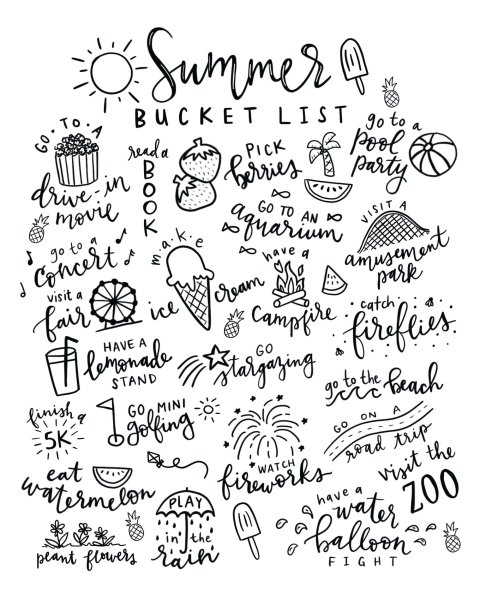 Summer
BUCKET LIST
GO TO A
drive-in
movie
read a
BOOK
PICK
berries
go to a
pool
party
GO TO AN
aquarium
VISIT A
amusement
park
go to a
concert
make
ice cream
visit a
fair
have a
campfire
catch
fireflies
HAVE A
lemonade
STAND
GO
stargazing
go to the beach
finish a
5K
GO MINI
golfing
WATCH
fireworks
GO ON A
road trip
visit the
ZOO
eat
watermelon
PLAY
in the
rain
have a
water
balloon
FIGHT
plant flowers